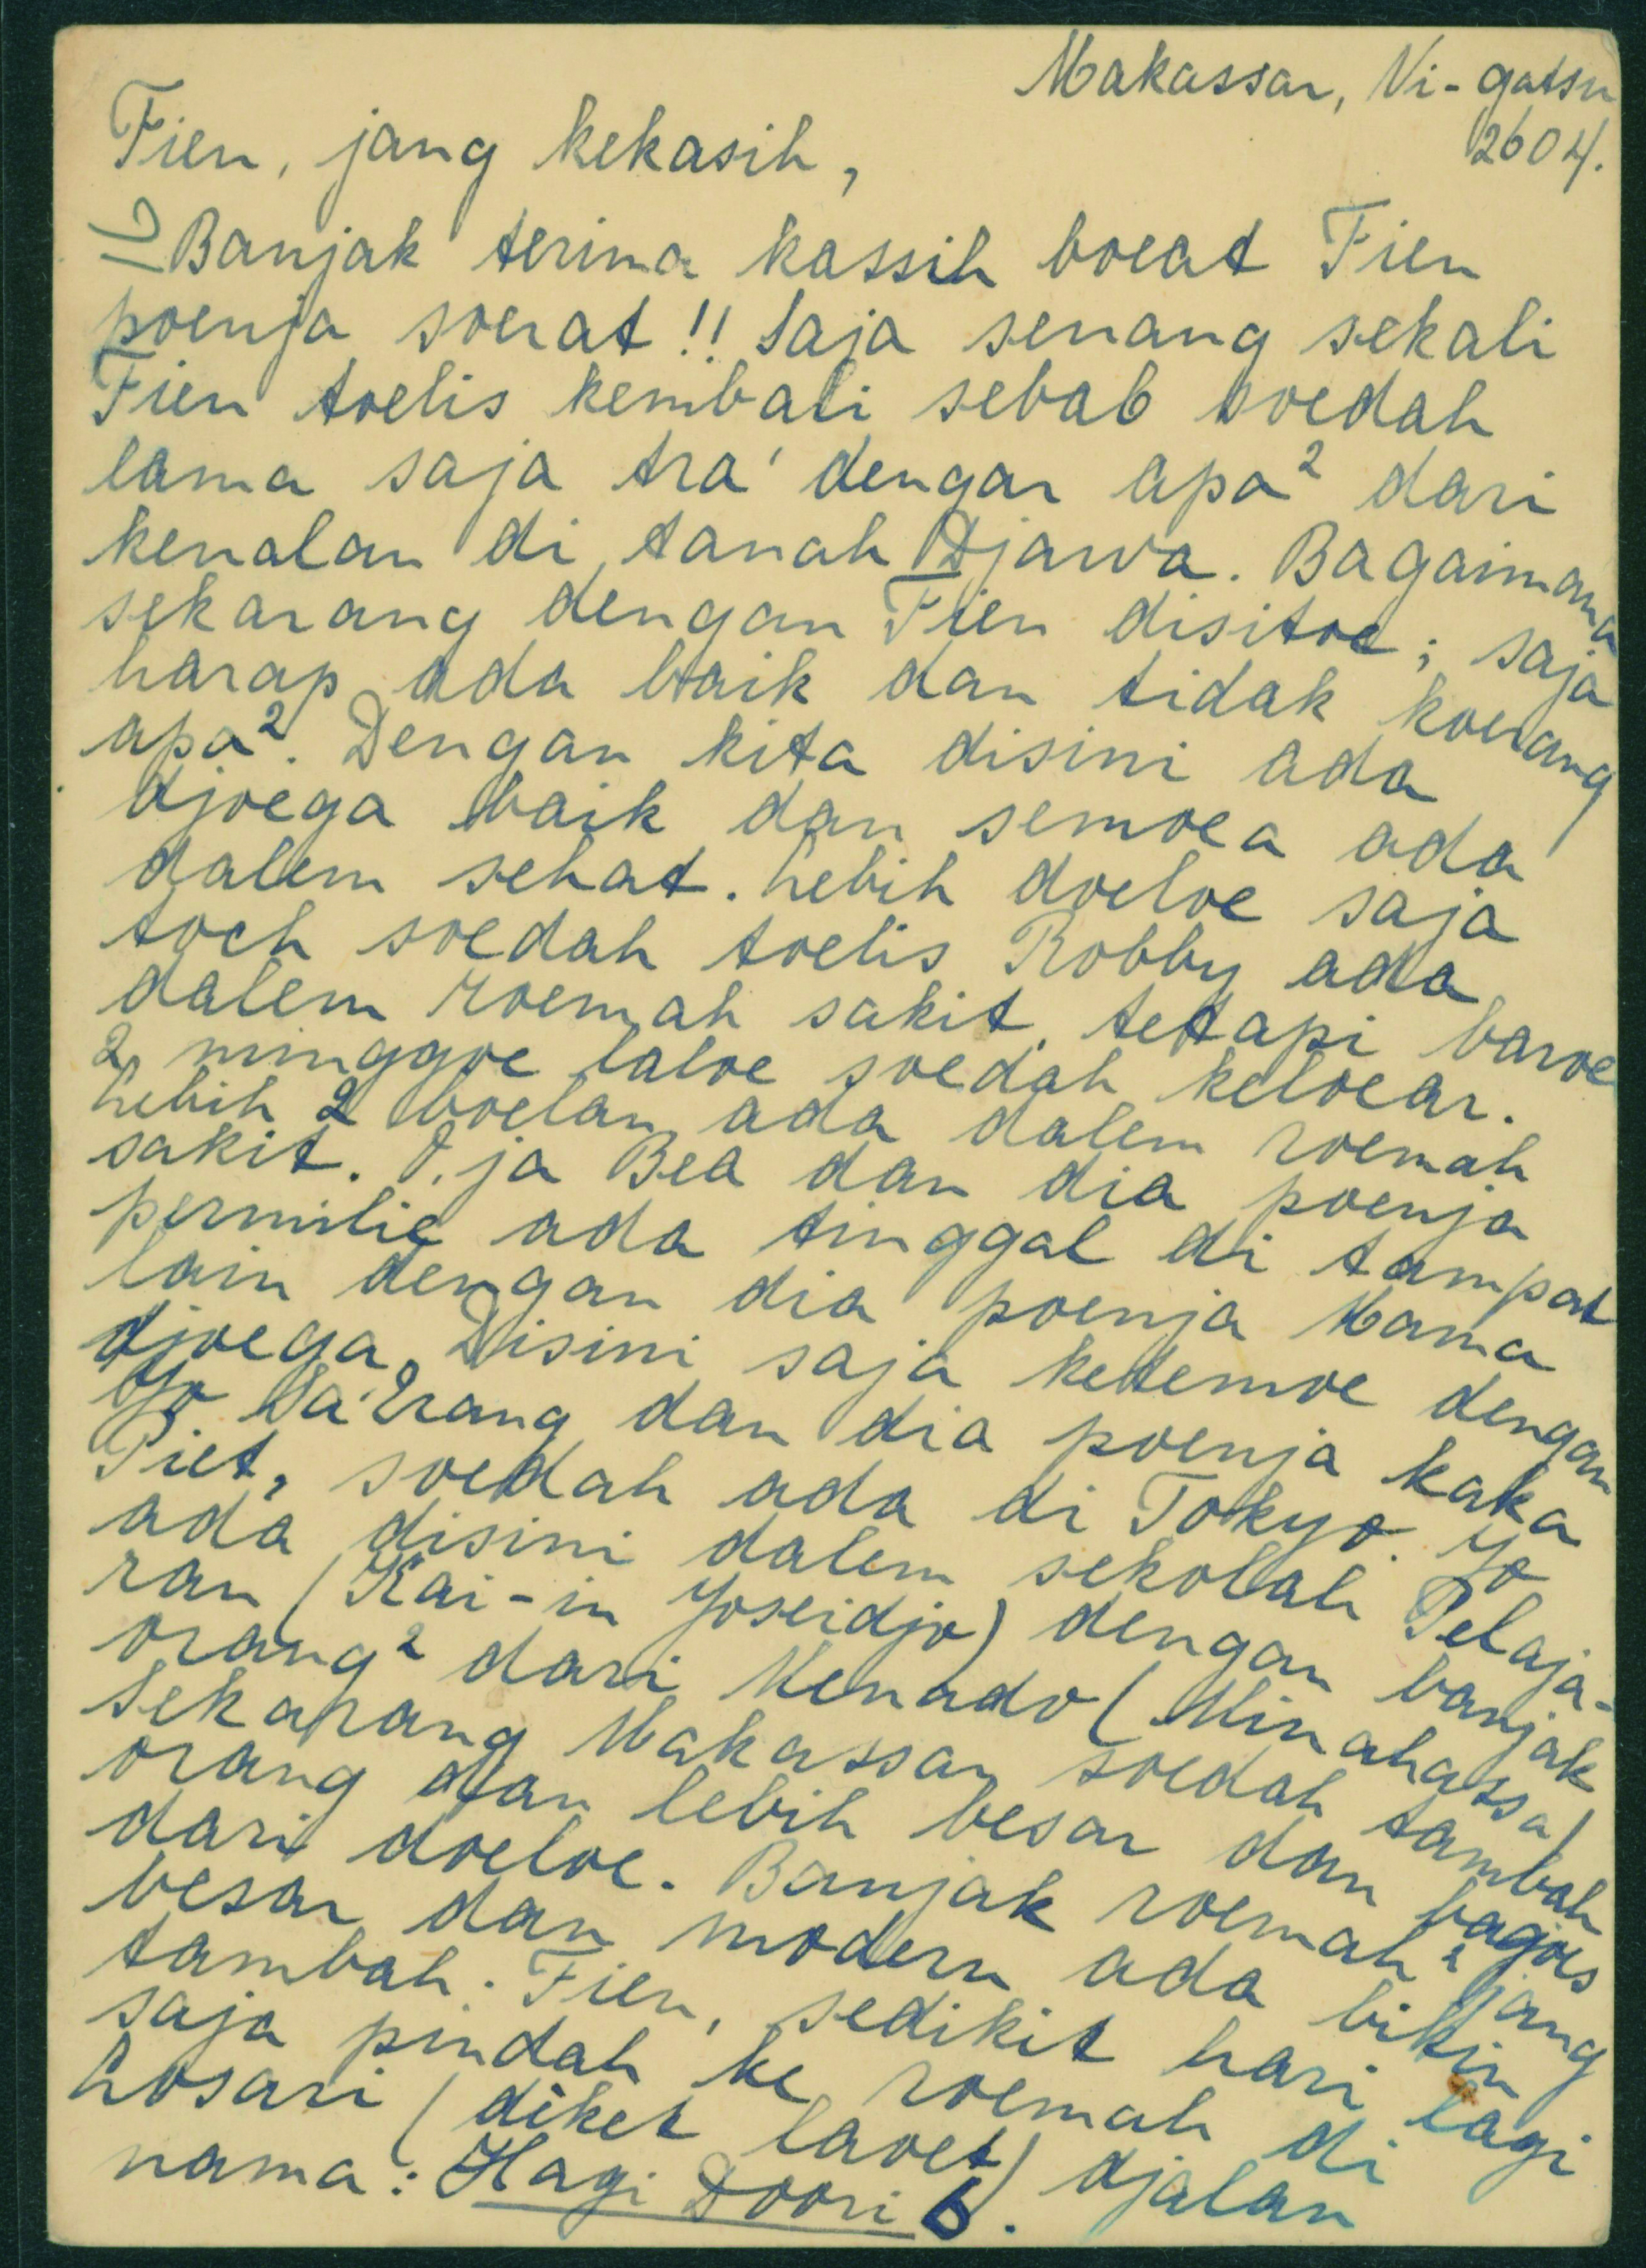 Makassar, Ni-gatsu
2604.
Fien, jang kekasih,
16
Banjak terima kassih boeat Fien
poenja soerat!! Saja senang sekali
Fien toelis kembali sebab soedah
lama saja tra' dengar apa² dari
kenalan di tanah Djawa. Bagaimana
sekarang dengan Fien disitoe; saja
harap ada baik dan tidak koerang
apa². Dengan kita disini ada
djoega baik dan semoea ada
dalem sehat. Lebih doeloe saja
toch soedah toelis Robby ada
dalem roemah sakit, tetapi baroe
2 minggoe laloe soedah keloear.
Lebih 2 boelan ada dalem roemah
sakit. O, ja Bea dan dia poenja
permilie ada tinggal di tampat
lain dengan dia poenja Mama
djoega. Disini saja ketemoe dengan
Yo Sa'erang dan dia poenja kaka
Piet, soedah ada di Tokyo. Yo
ada disini dalem sekolah Pelaja-
ran (Kai-in Yoseidjo) dengan banjak
orang² dari Menado (Minahassa)
Sekarang Makassar soedah tambah
orang dan lebih besar dan bagoes
dari doeloe. Banjak roemah² jang
besar dan modern ada bikin
tambah. Fien, sedikit hari lagi
saja pindah ke roemah di
Losari (diket laoet) djalan
nama: Hagi Doori 6.